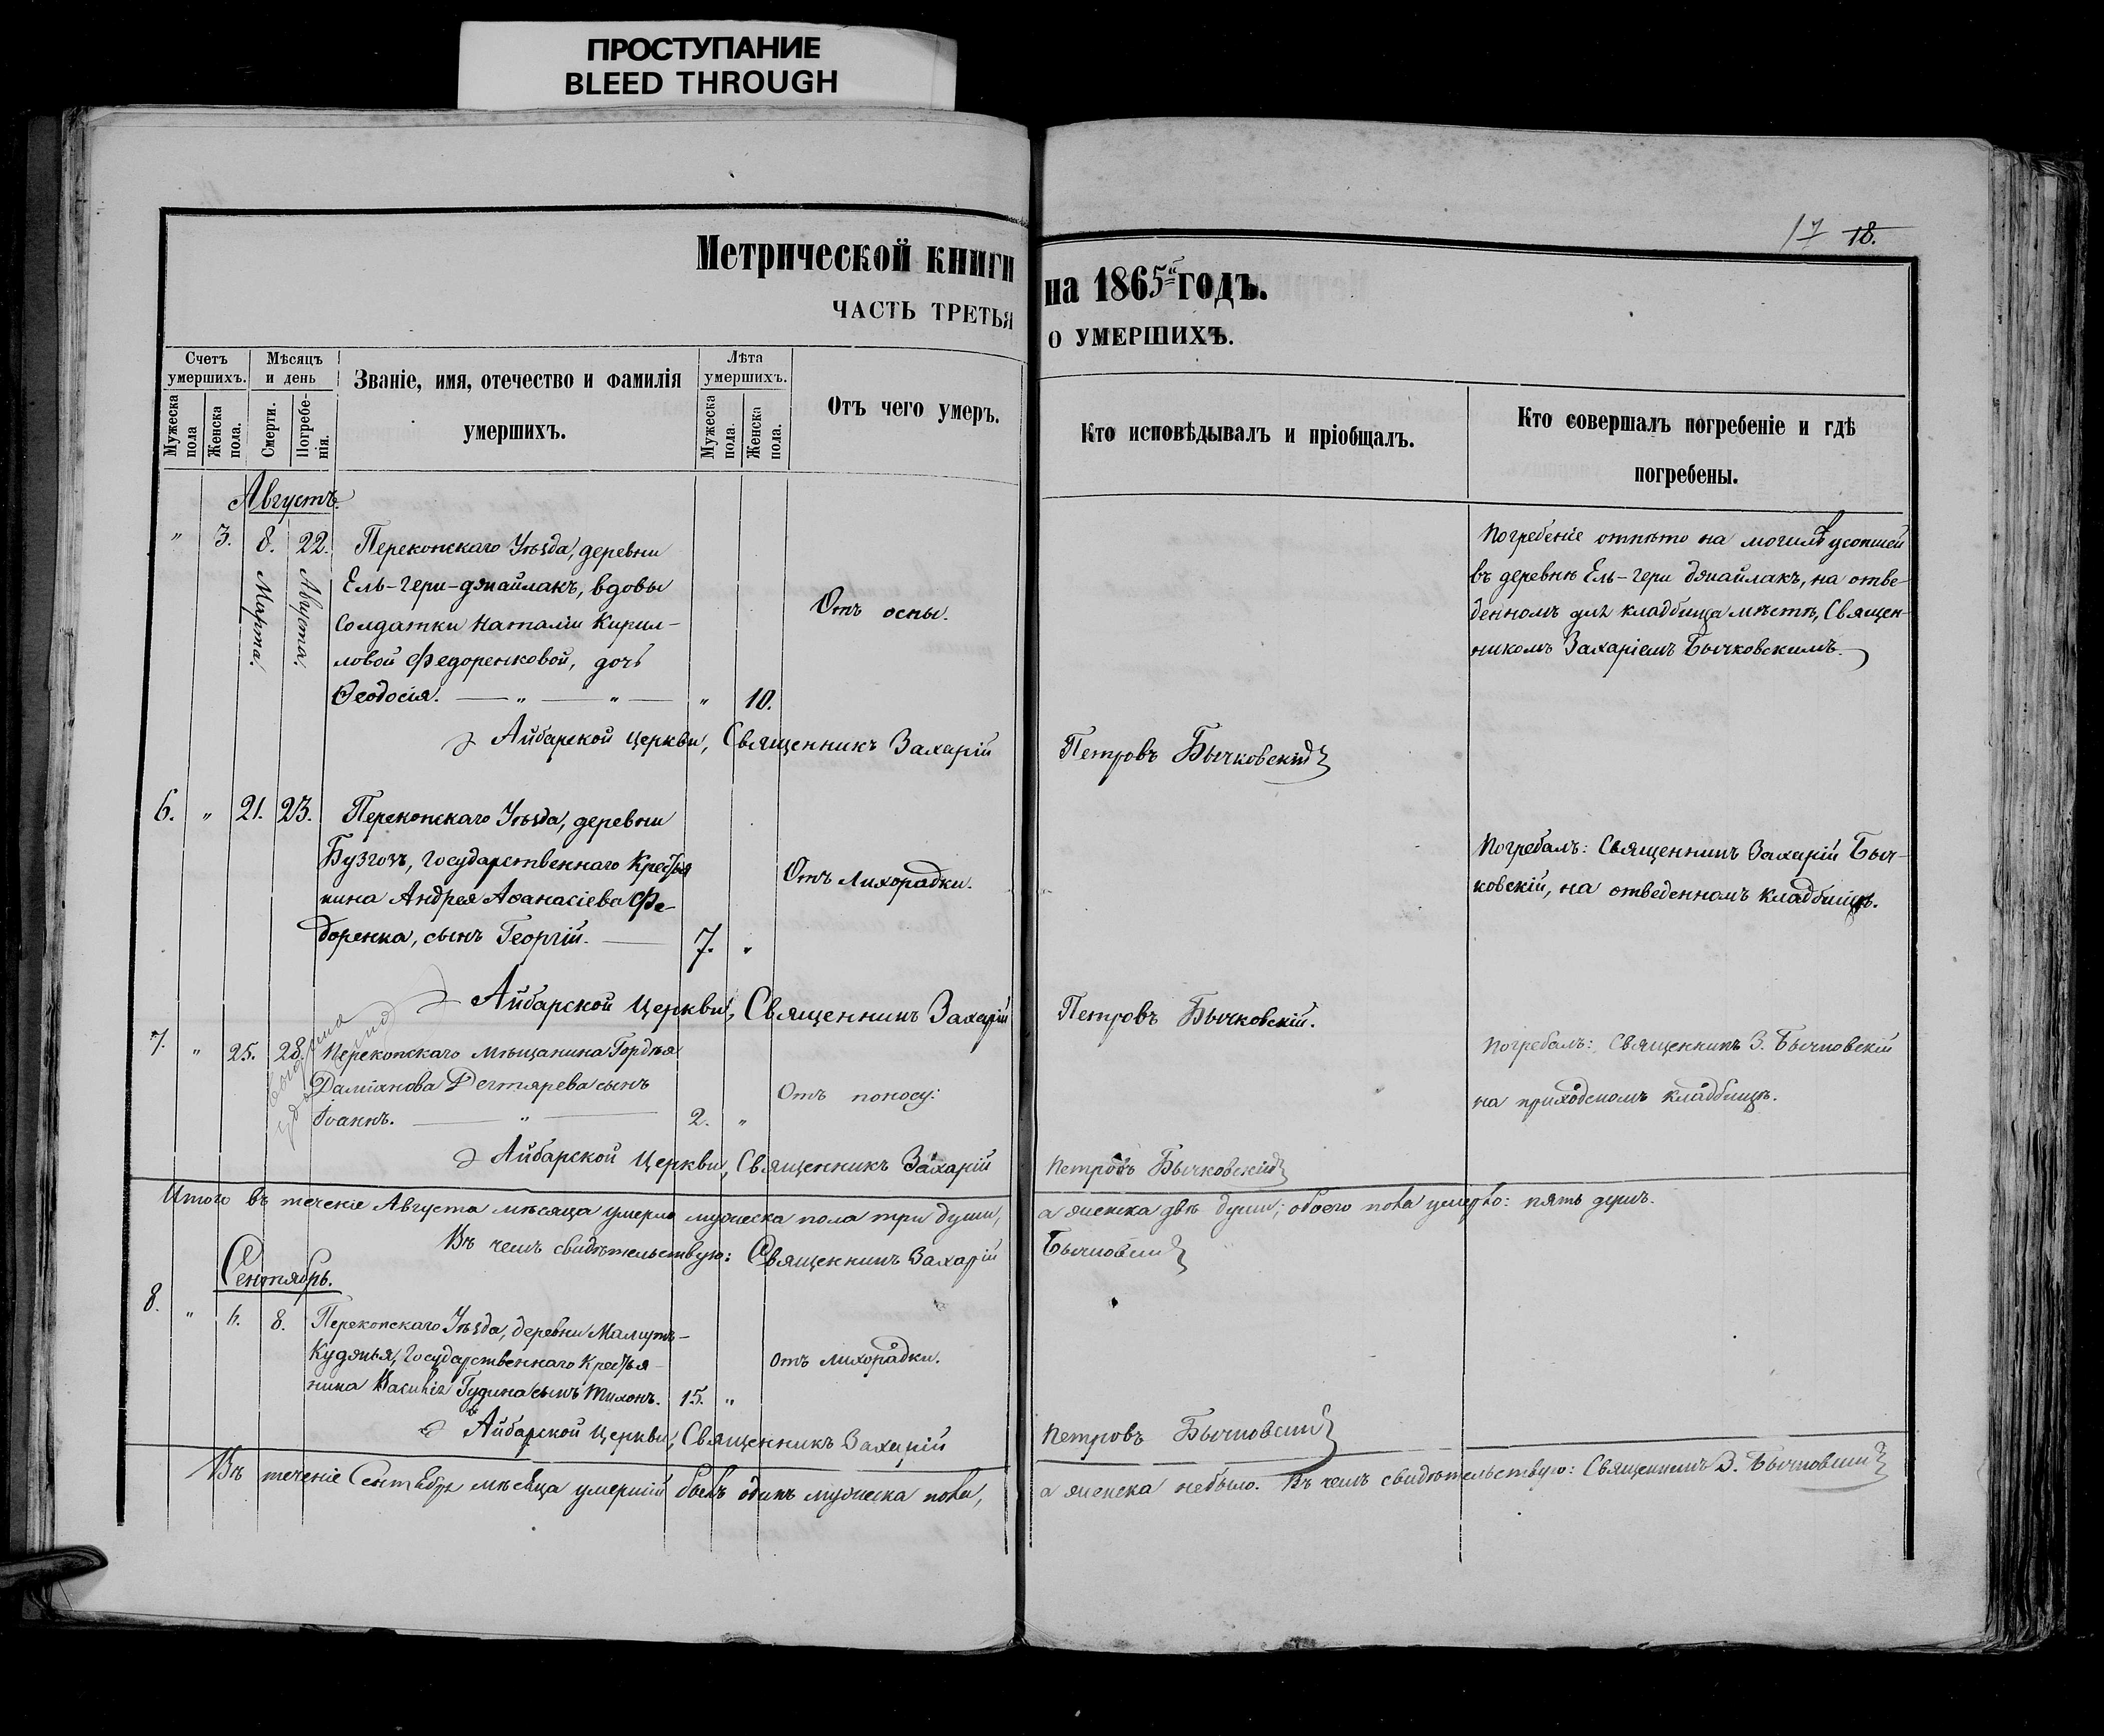 ПРОСТУПАНИЕ
BLEED THROUGH
17 18.
Метрической книги на 1865й годъ.
ЧАСТЬ ТРЕТЬЯ О УМЕРШИХЪ.
Счетъ умершихъ.
Мужеска пола
Женска пола.
Мѣсяцъ и день
Смерти.
Погребенія.
Званіе, имя, отечество и фамилія умершихъ.
Лѣта умершихъ.
Мужеска пола.
Женска пола.
Отъ чего умеръ.
Кто исповѣдывалъ и пріобщалъ.
Кто совершалъ погребеніе и гдѣ погребены.
Августъ.
" 3. 8. Марта. 22. Августа.
Перекопскаго Уѣзда, деревни
Ель-гери-джайлакъ, вдовы
Солдатки Наталіи Кирил-
ловой Федоренковой, дочь
Ѳеодосія. " " " 10.
Отъ оспы.
Погребеніе отпѣто на могилѣ усопшей
въ деревнѣ Ель-гери джайлакъ, на отве-
денномъ для кладбища мѣстѣ, Священ-
никомъ Захаріемъ Бычковскимъ.
Айбарской Церкви, Священникъ Захарій Петровъ Бычковскій
6. " 21. 23.
Перекопскаго Уѣзда, деревни
Бузгозъ, Государственнаго Крестья
нина Андрея Аѳанасіева Фе-
доренка, сынъ Георгій. 7. "
Отъ лихорадки.
Погребалъ: Священникъ Захарій Быч-
ковскій, на отведенномъ кладбищѣ.
Айбарской Церкви, Священникъ Захарій Петровъ Бычковскій.
7. " 25. 28.
Перекопскаго мѣщанина Гордѣя
Даміанова Дегтярева сынъ
Іоаннъ. " 2. "
Отъ поносу.
Погребалъ: Священникъ З. Бычковскій
на приходскомъ кладбищѣ.
Айбарской Церкви, Священникъ Захарій Петровъ Бычковскій
Итого въ теченіе Августа мѣсяца умерло мужеска пола три души, а женска двѣ души; обоего пола умерло: пять душъ.
Въ чемъ свидѣтельствую: Священникъ Захарій Бычковскій
Сентябрь.
8. " 6. 8.
Перекопскаго Уѣзда, деревни
Государственнаго Крестья-
нина Василія Гудина сынъ Тихонъ. 15. "
отъ лихорадки.
Айбарской Церкви, Священникъ Захарій Петровъ Бычковскій
Въ теченіе Сентября мѣсяца умершій былъ одинъ мужеска пола, а женска небыло. Въ чемъ свидѣтельствую: Священникъ З. Бычковскій